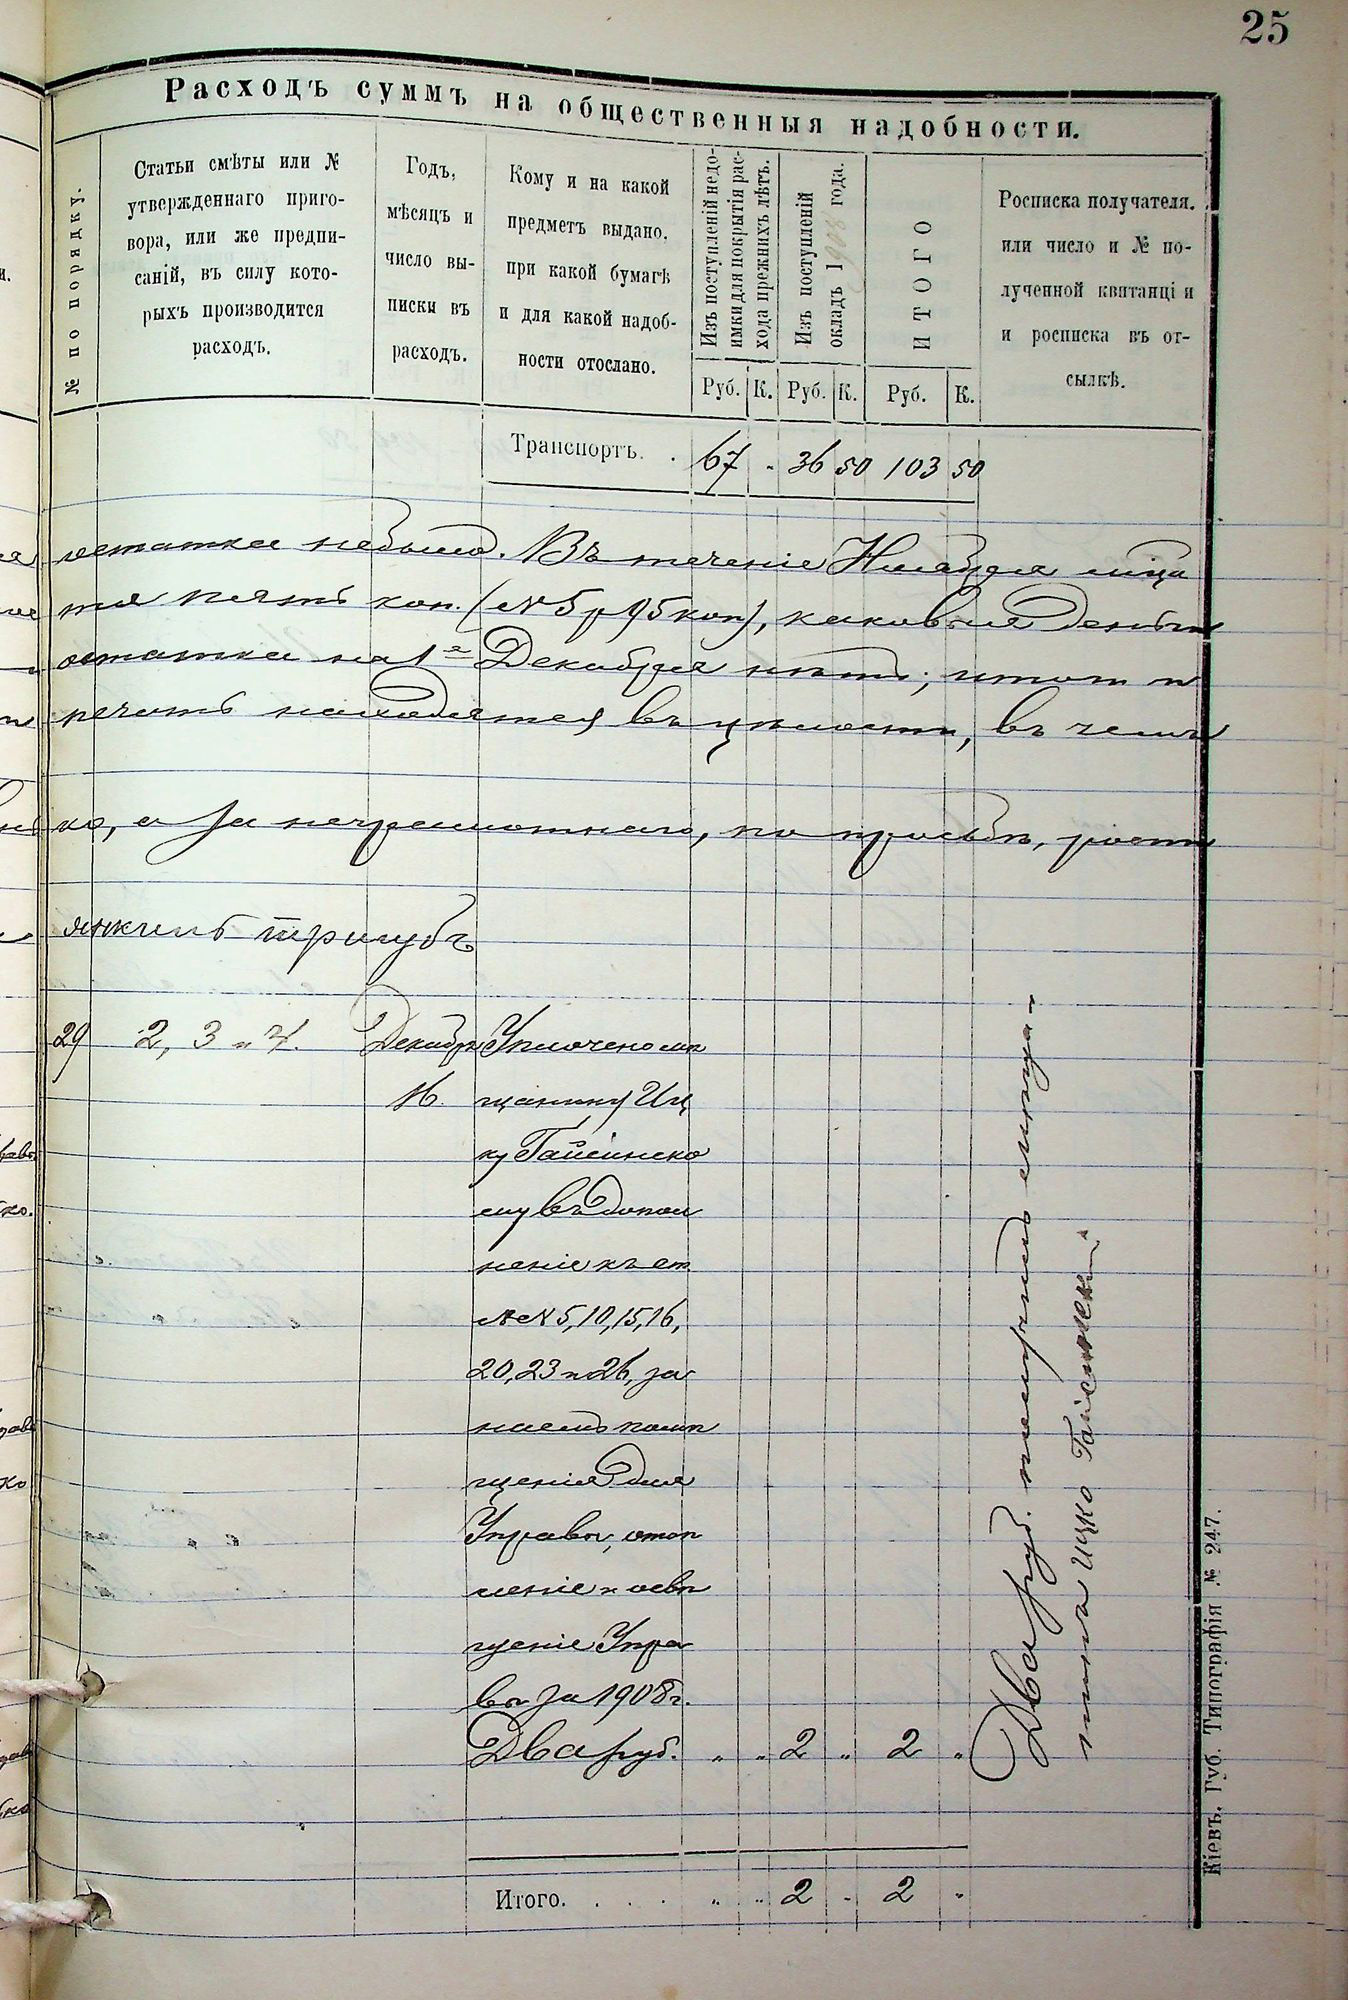 25
Расходъ суммъ на общественныя надобности.
№ по порядку.
Статьи смѣты или №
утвержденнаго приго-
вора, или же предпи-
саній, въ силу кото-
рыхъ производится
расходъ.
Годъ,
мѣсяцъ и
число вы-
писки въ
расходъ.
Кому и на какой
предметъ выдано,
при какой бумагѣ
и для какой надоб-
ности отослано.
Изъ поступленій недо-
имки для покрытія рас-
хода прежнихъ лѣтъ.
Изъ поступленій
окладъ 1908 года.
ИТОГО
Росписка получателя.
или число и № по-
лученной квитанціи
и росписка въ от-
сылкѣ.
Руб. К. Руб. К. Руб. К.
Транспортъ. . 67 „ 36 50 103 50
остатка небыло. Въ теченіе Ноября мѣся
та пять коп. (№ 5 р 95 коп), каковыя деньги
остатка на 1е Декабря нѣтъ; и
печать находятся въ цѣлости, въ чемъ
ко, а за неграмотнаго, по просьбѣ, роспи
янкель тригубъ
29 2, 3 и 4. Декабр Уплочено мѣ
16. щанину Иц
ку Гайсинско
му въ допол
неніе къ ст
№№ 5, 10, 15, 16,
20, 23 и 26, за
наемъ помѣ
щенія для
Управы, отоп
леніе и освѣ
щеніе Упра
вы за 1908 г.
Два руб. „ „ 2 „ 2 „
Два руб. получилъ мѣща-
нинъ Ицко Гайсинскій
Итого. . . . . „ „ 2 „ 2 „
Кіевъ. Губ. Типографія № 247.